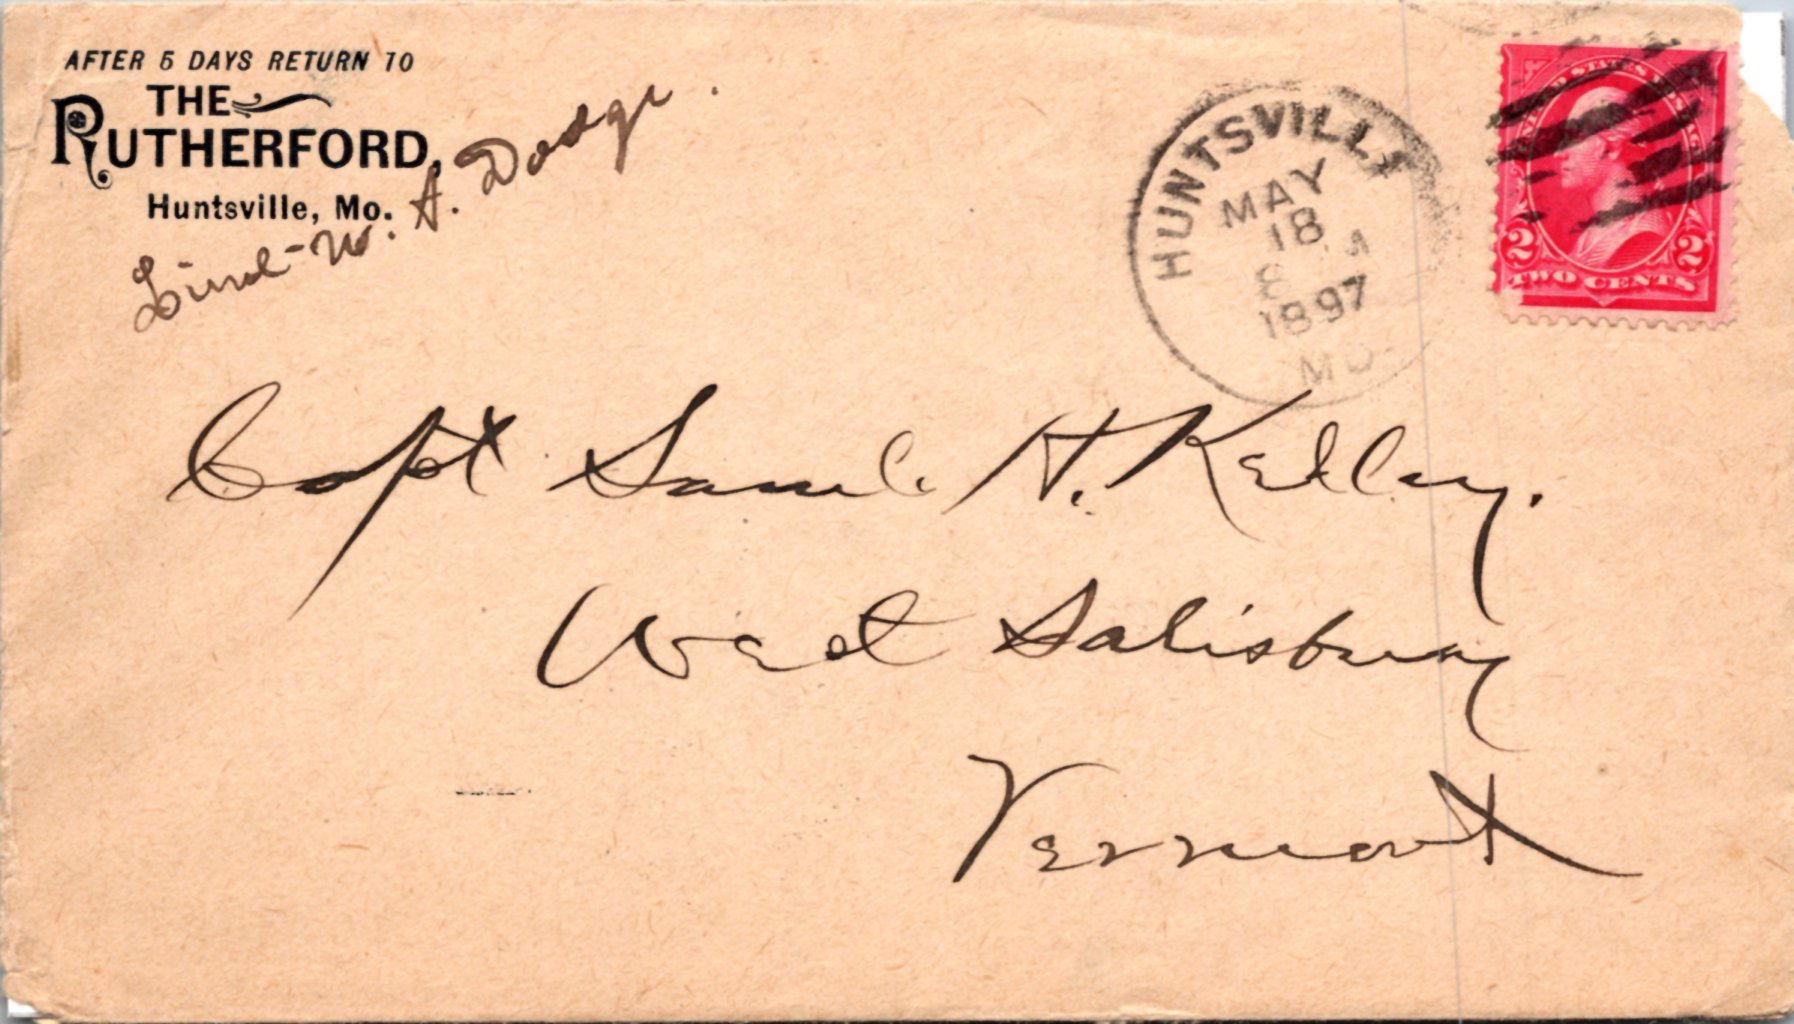 AFTER 5 DAYS RETURN TO
THE
RUTHERFORD,
Huntsville, Mo.
W. A. Dodge.
HUNTSVILLE
MAY
18
8 M
1897
MO.
UNITED STATES POSTAGE
2 2
TWO CENTS
Capt Saml. H. Kelley.
West Salisbury
Vermont